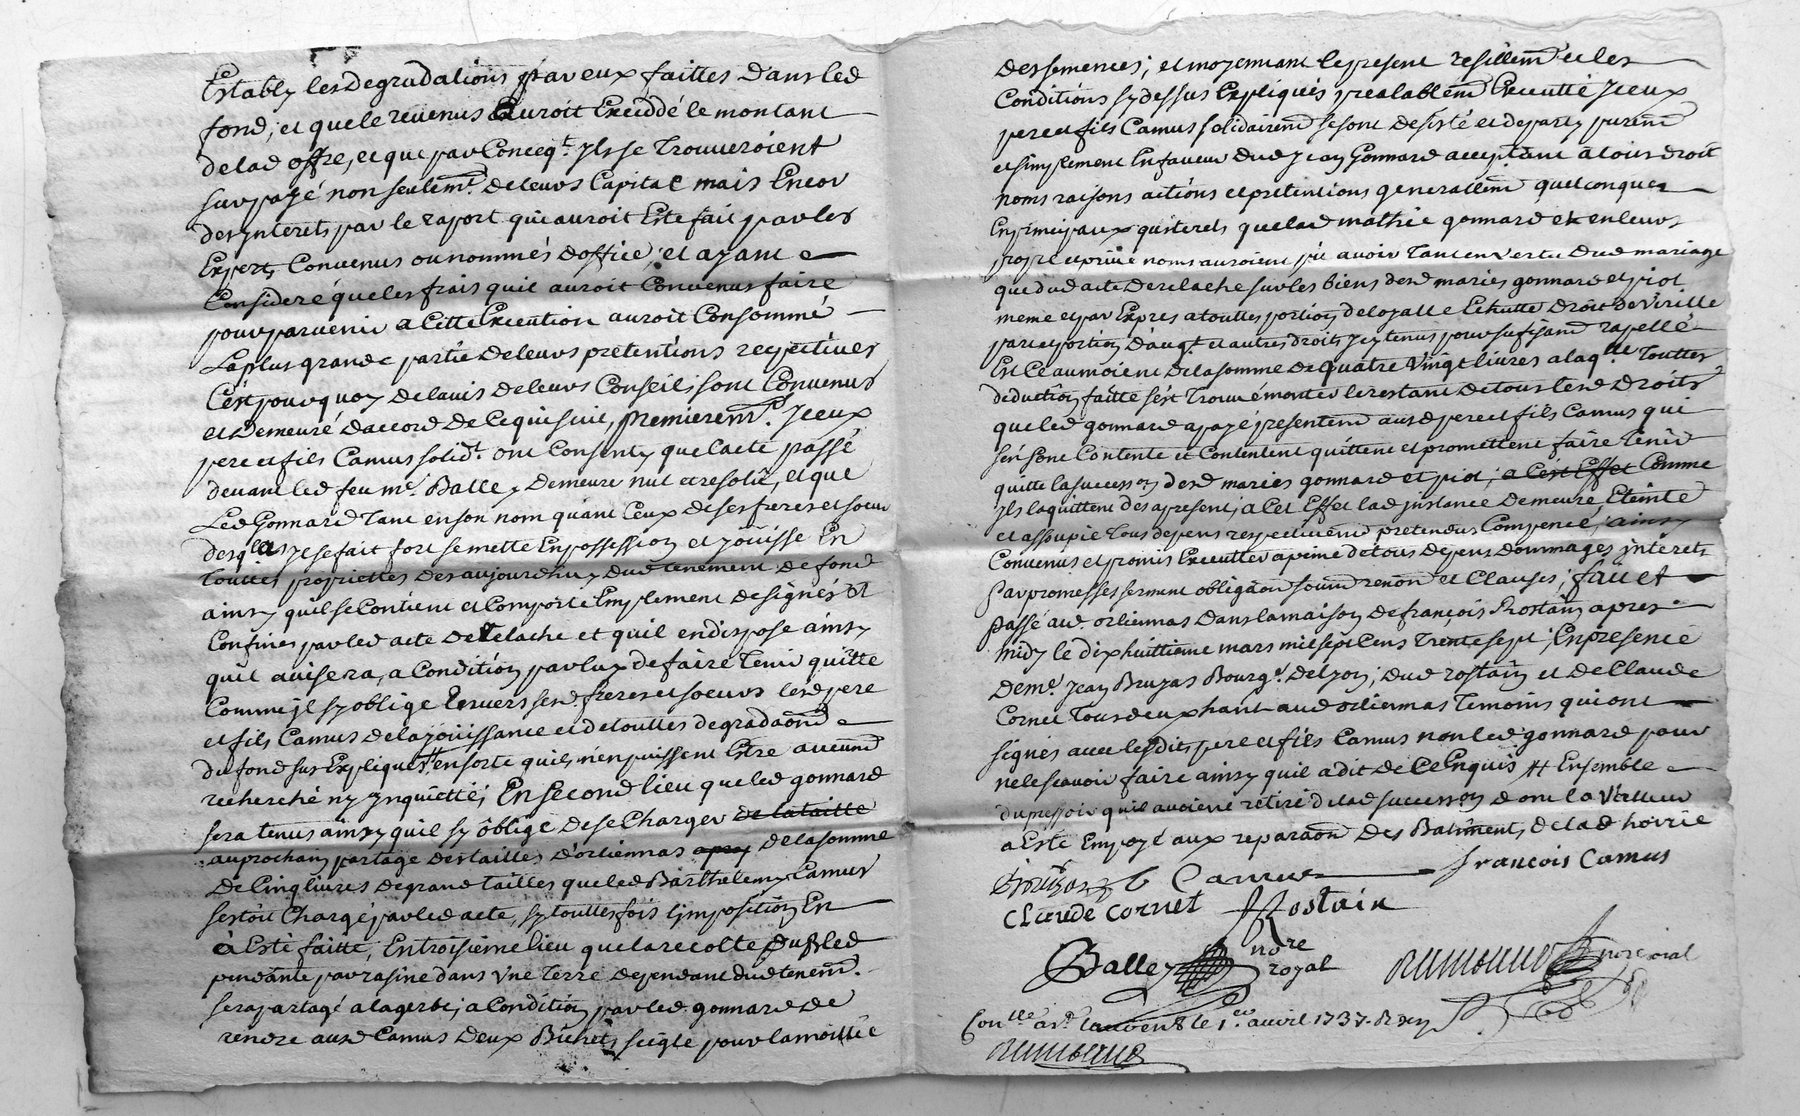 Establÿ les degradations par eux faittes dans led
fond; et que le revenus auroit Exceddé le montant
delad offre, et que par Conceqt. Ils se Trouveroient
surpayé non seulemt. de leurs Capital mais Encor
des ynterets par le raport qui auroit Esté fait par les
Experts Convenus ou nommés d'office; et ayant
Consideré que les frais quil auroit Convenus faire
pour parvenir a Cette Execution auroit Consommé
La plus grande partie de leurs pretentions respectives
C'est pourquoy de lavis de leurs Conseils sont Convenus
et Demeuré daccord de Ce qui suit, premierement. Iceux
pere et fils Camus solidt. ont Consenty que lacte passé
devant led feu me. Balley demeure nul et resolu, et que
Led Gonnard tant en son nom quant Ceux de ses freres et soeur
desqls. Il se fait fort se mette En possession et joüisse En
Touttes proprietes des aujourdhuy dud tenement de fond
ainsy quil se Contient et Comporte Emplement designés et
Confinés par led acte de relache et quil en dispose ainsy
quil avisera, a Condition par luy de faire Tenir quitte
Comme jl sy oblige Envers sesd. freres et soeurs lesd pere
et fils Camus de la joüissance et de touttes degradaons
du fond sus Expliqué # en sorte quils n'en puissent Estre aucunmt
recherché ny Ynquietté; En second lieu que led gonnard
sera tenus ainsy quil sy öblige de se Charger de la taille
au prochain partage des tailles d'orliennas apres de la somme
de Cinq livres de grand tailles que led Barthelemy Camus
sestoit Chargé par led acte, sy touttes fois l'imposition En
à Esté faitte, En troisieme lieu que la recolte
pendante par rasine dans Une Terre dependant dud tenemt.
sera partagé a la gerbe, a Condition par led gonnard de
rendre ausd Camus Deux Bichets seigle pour la moitié
des semences; et moyennant le present resillemt et les
Conditions sy dessus Expliqués prealablemt Executté Iceux
pere et fils Camus solidairemt se sont desisté et departy puremt
et simplement En faveur dud Jean Gonnard acceptant a tous droit
noms raisons actions et pretentions generallemt quelconques
En principaux qu'interets que lad mathie gonnard et en leurs
propre et privé noms auroient pû avoir Tant en vertu dud mariage
que dud acte de relache sur les biens desd mariés gonnard et piot
meme et par Expres a touttes portion de loyalle Echutte droit de Virille
part et portion d'augt. et autres droits jcy tenus pour sufisamt rapellé
Et Ce au moient de la somme de quatre vingt livres a laqlle Touttes
deduction faitte s'est Trouvé monter le restant de tous lesd droits
que led gonnard a payé presentemt ausd pere et fils Camus qui
s'en sont Contente et Contentent quittent et promettent faire Tenir
quitte la succession desd mariés gonnard et piot; a Cest Effet Comme
Ils laquittent des a present, a Cet Effet lad jnstance demeure Eteinte
et assoupie Tous depens respectivemt pretendus Compencé, ainsy
Convenus et promis Executter a peine de tous depens dommages interets
Par promesses serment obligaon soumn renon et Clauses; fait et
Passé aud. orliennas dans la maison de françois Rostain apres
midy le dix huittieme mars mil sept cens Trente sept; En presence
de me. Jean Bruyas Bourgs. de Lyon; dud rostain et de Claude
Cornet Tous deux habt aud orliennas Temoins qui ont
signés avec lesdits pere et fils Camus non led gonnard pour
ne le scavoir faire ainsy quil a dit de Ce Enquis # Ensemble
du pressoir quil avoient retiré delad succession dont la Valleur
a Esté Employé aux reparaon des Batiments delad hoirie
Camus françois Camus
Claude Cornet Rostain
Balley nore
royal
Conlle ar. 1er. avril 1737